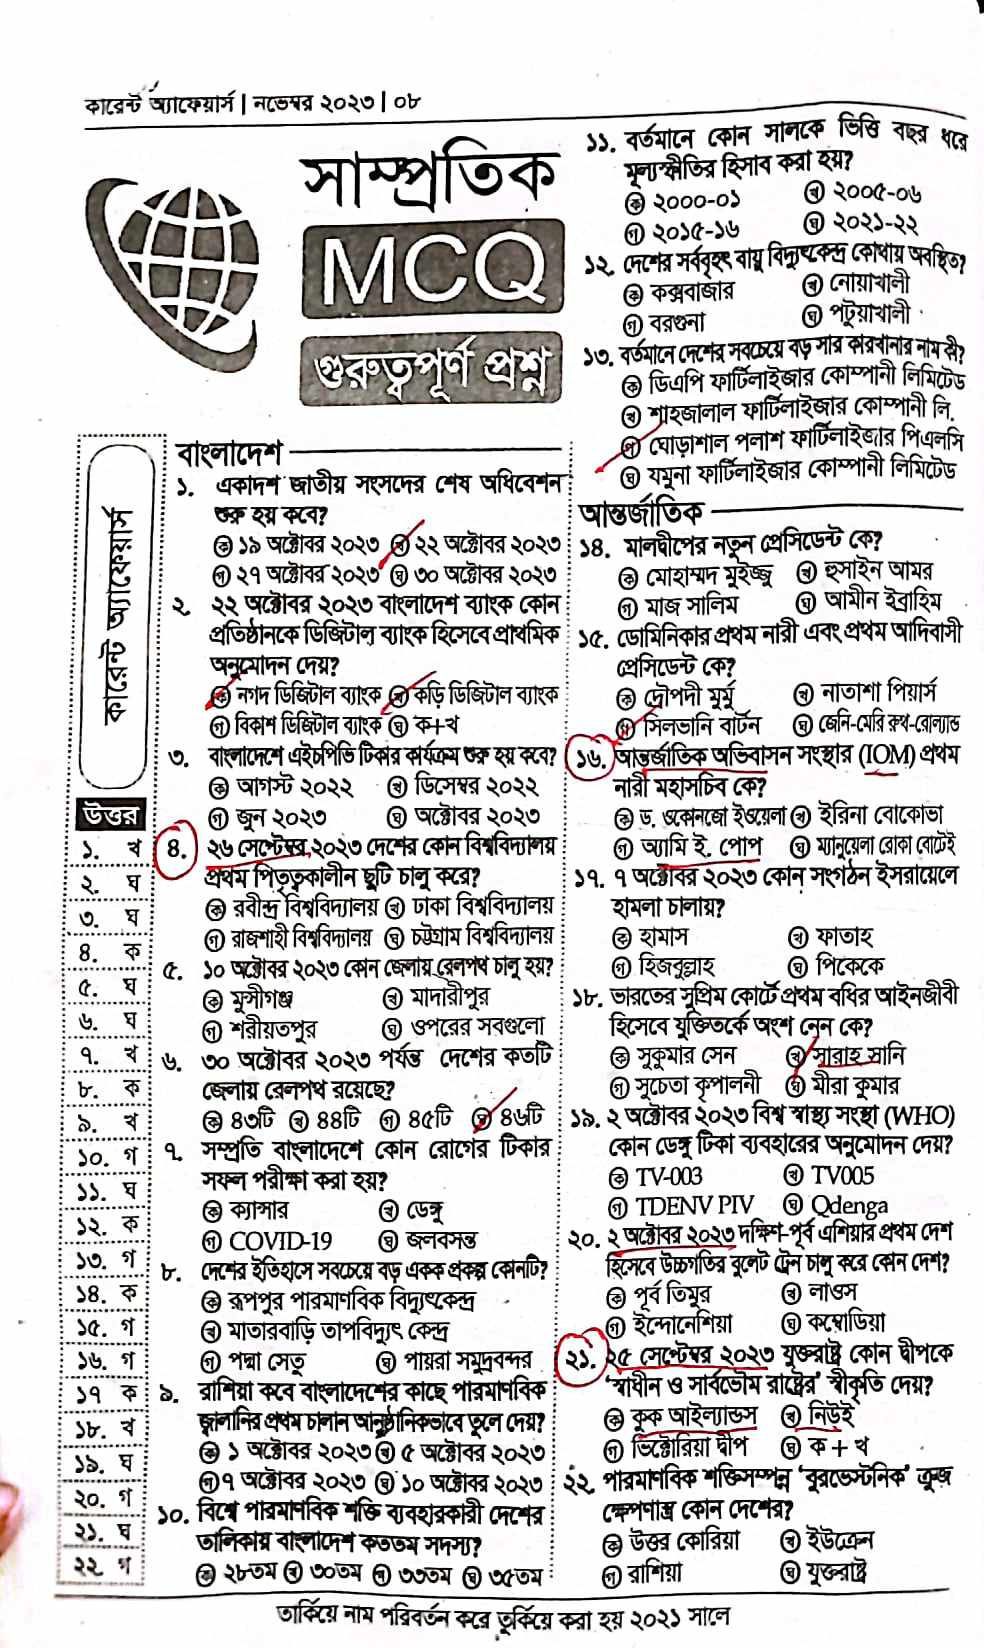 কারেন্ট অ্যাফেয়ার্স | নভেম্বর ২০২৩ | ০৮
সাম্প্রতিক
MCQ
গুরুত্বপূর্ণ প্রশ্ন
কারেন্ট অ্যাফেয়ার্স
উত্তর
১. খ
২. ঘ
৩. ঘ
৪. ক
৫. ঘ
৬. ঘ
৭. খ
৮. ক
৯. খ
১০. গ
১১. ঘ
১২. ক
১৩. গ
১৪. ক
১৫. গ
১৬. গ
১৭ ক
১৮. খ
১৯. ঘ
২০. গ
২১. ঘ
২২ গ
বাংলাদেশ
১. একাদশ জাতীয় সংসদের শেষ অধিবেশন
শুরু হয় কবে?
ক ১৯ অক্টোবর ২০২৩ খ ২২ অক্টোবর ২০২৩
গ ২৭ অক্টোবর ২০২৩ ঘ ৩০ অক্টোবর ২০২৩
২. ২২ অক্টোবর ২০২৩ বাংলাদেশ ব্যাংক কোন
প্রতিষ্ঠানকে ডিজিটাল ব্যাংক হিসেবে প্রাথমিক
অনুমোদন দেয়?
ক নগদ ডিজিটাল ব্যাংক খ কড়ি ডিজিটাল ব্যাংক
গ বিকাশ ডিজিটাল ব্যাংক ঘ ক+খ
৩. বাংলাদেশে এইচপিভি টিকার কার্যক্রম শুরু হয় কবে?
ক আগস্ট ২০২২ খ ডিসেম্বর ২০২২
গ জুন ২০২৩ ঘ অক্টোবর ২০২৩
৪. ২৬ সেপ্টেম্বর ২০২৩ দেশের কোন বিশ্ববিদ্যালয়
প্রথম পিতৃত্বকালীন ছুটি চালু করে?
ক রবীন্দ্র বিশ্ববিদ্যালয় খ ঢাকা বিশ্ববিদ্যালয়
গ রাজশাহী বিশ্ববিদ্যালয় ঘ চট্টগ্রাম বিশ্ববিদ্যালয়
৫. ১০ অক্টোবর ২০২৩ কোন জেলায় রেলপথ চালু হয়?
ক মুন্সীগঞ্জ খ মাদারীপুর
গ শরীয়তপুর ঘ ওপরের সবগুলো
৬. ৩০ অক্টোবর ২০২৩ পর্যন্ত দেশের কতটি
জেলায় রেলপথ রয়েছে?
ক ৪৩টি খ ৪৪টি গ ৪৫টি ঘ ৪৬টি
৭. সম্প্রতি বাংলাদেশে কোন রোগের টিকার
সফল পরীক্ষা করা হয়?
ক ক্যান্সার খ ডেঙ্গু
গ COVID-19 ঘ জলবসন্ত
৮. দেশের ইতিহাসে সবচেয়ে বড় একক প্রকল্প কোনটি?
ক রূপপুর পারমাণবিক বিদ্যুৎকেন্দ্র
খ মাতারবাড়ি তাপবিদ্যুৎ কেন্দ্র
গ পদ্মা সেতু ঘ পায়রা সমুদ্রবন্দর
৯. রাশিয়া কবে বাংলাদেশের কাছে পারমাণবিক
জ্বালানির প্রথম চালান আনুষ্ঠানিকভাবে তুলে দেয়?
ক ১ অক্টোবর ২০২৩ খ ৫ অক্টোবর ২০২৩
গ ৭ অক্টোবর ২০২৩ ঘ ১০ অক্টোবর ২০২৩
১০. বিশ্বে পারমাণবিক শক্তি ব্যবহারকারী দেশের
তালিকায় বাংলাদেশ কততম সদস্য?
ক ২৮তম খ ৩০তম গ ৩৩তম ঘ ৩৫তম
১১. বর্তমানে কোন সালকে ভিত্তি বছর ধরে
মূল্যস্ফীতির হিসাব করা হয়?
ক ২০০০-০১ খ ২০০৫-০৬
গ ২০১৫-১৬ ঘ ২০২১-২২
১২. দেশের সর্ববৃহৎ বায়ু বিদ্যুৎকেন্দ্র কোথায় অবস্থিত?
ক কক্সবাজার খ নোয়াখালী
গ বরগুনা ঘ পটুয়াখালী
১৩. বর্তমানে দেশের সবচেয়ে বড় সার কারখানার নাম কী?
ক ডিএপি ফার্টিলাইজার কোম্পানী লিমিটেড
খ শাহজালাল ফার্টিলাইজার কোম্পানী লি.
গ ঘোড়াশাল পলাশ ফার্টিলাইজার পিএলসি
ঘ যমুনা ফার্টিলাইজার কোম্পানী লিমিটেড
আন্তর্জাতিক
১৪. মালদ্বীপের নতুন প্রেসিডেন্ট কে?
ক মোহাম্মদ মুইজ্জু খ হুসাইন আমর
গ মাজ সালিম ঘ আমীন ইব্রাহিম
১৫. ডোমিনিকার প্রথম নারী এবং প্রথম আদিবাসী
প্রেসিডেন্ট কে?
ক দ্রৌপদী মুর্মু খ নাতাশা পিয়ার্স
গ সিলভানি বার্টন ঘ জেনি-মেরি রুথ-রোল্যান্ড
১৬. আন্তর্জাতিক অভিবাসন সংস্থার (IOM) প্রথম
নারী মহাসচিব কে?
ক ড. ওকোনজো ইওয়েলা খ ইরিনা বোকোভা
গ অ্যামি ই. পোপ ঘ ম্যানুয়েলা রোকা বোটেই
১৭. ৭ অক্টোবর ২০২৩ কোন সংগঠন ইসরায়েলে
হামলা চালায়?
ক হামাস খ ফাতাহ
গ হিজবুল্লাহ ঘ পিকেকে
১৮. ভারতের সুপ্রিম কোর্টে প্রথম বধির আইনজীবী
হিসেবে যুক্তিতর্কে অংশ নেন কে?
ক সুকুমার সেন খ সারাহ সানি
গ সুচেতা কৃপালনী ঘ মীরা কুমার
১৯. ২ অক্টোবর ২০২৩ বিশ্ব স্বাস্থ্য সংস্থা (WHO)
কোন ডেঙ্গু টিকা ব্যবহারের অনুমোদন দেয়?
ক TV-003 খ TV005
গ TDENV PIV ঘ Qdenga
২০. ২ অক্টোবর ২০২৩ দক্ষিণ-পূর্ব এশিয়ার প্রথম দেশ
হিসেবে উচ্চগতির বুলেট ট্রেন চালু করে কোন দেশ?
ক পূর্ব তিমুর খ লাওস
গ ইন্দোনেশিয়া ঘ কম্বোডিয়া
২১. ২৫ সেপ্টেম্বর ২০২৩ যুক্তরাষ্ট্র কোন দ্বীপকে
'স্বাধীন ও সার্বভৌম রাষ্ট্রের' স্বীকৃতি দেয়?
ক কুক আইল্যান্ডস খ নিউই
গ ভিক্টোরিয়া দ্বীপ ঘ ক + খ
২২. পারমাণবিক শক্তিসম্পন্ন 'বুরভেস্টনিক' ক্রুজ
ক্ষেপণাস্ত্র কোন দেশের?
ক উত্তর কোরিয়া খ ইউক্রেন
গ রাশিয়া ঘ যুক্তরাষ্ট্র
তার্কিয়ে নাম পরিবর্তন করে তুর্কিয়ে করা হয় ২০২১ সালে